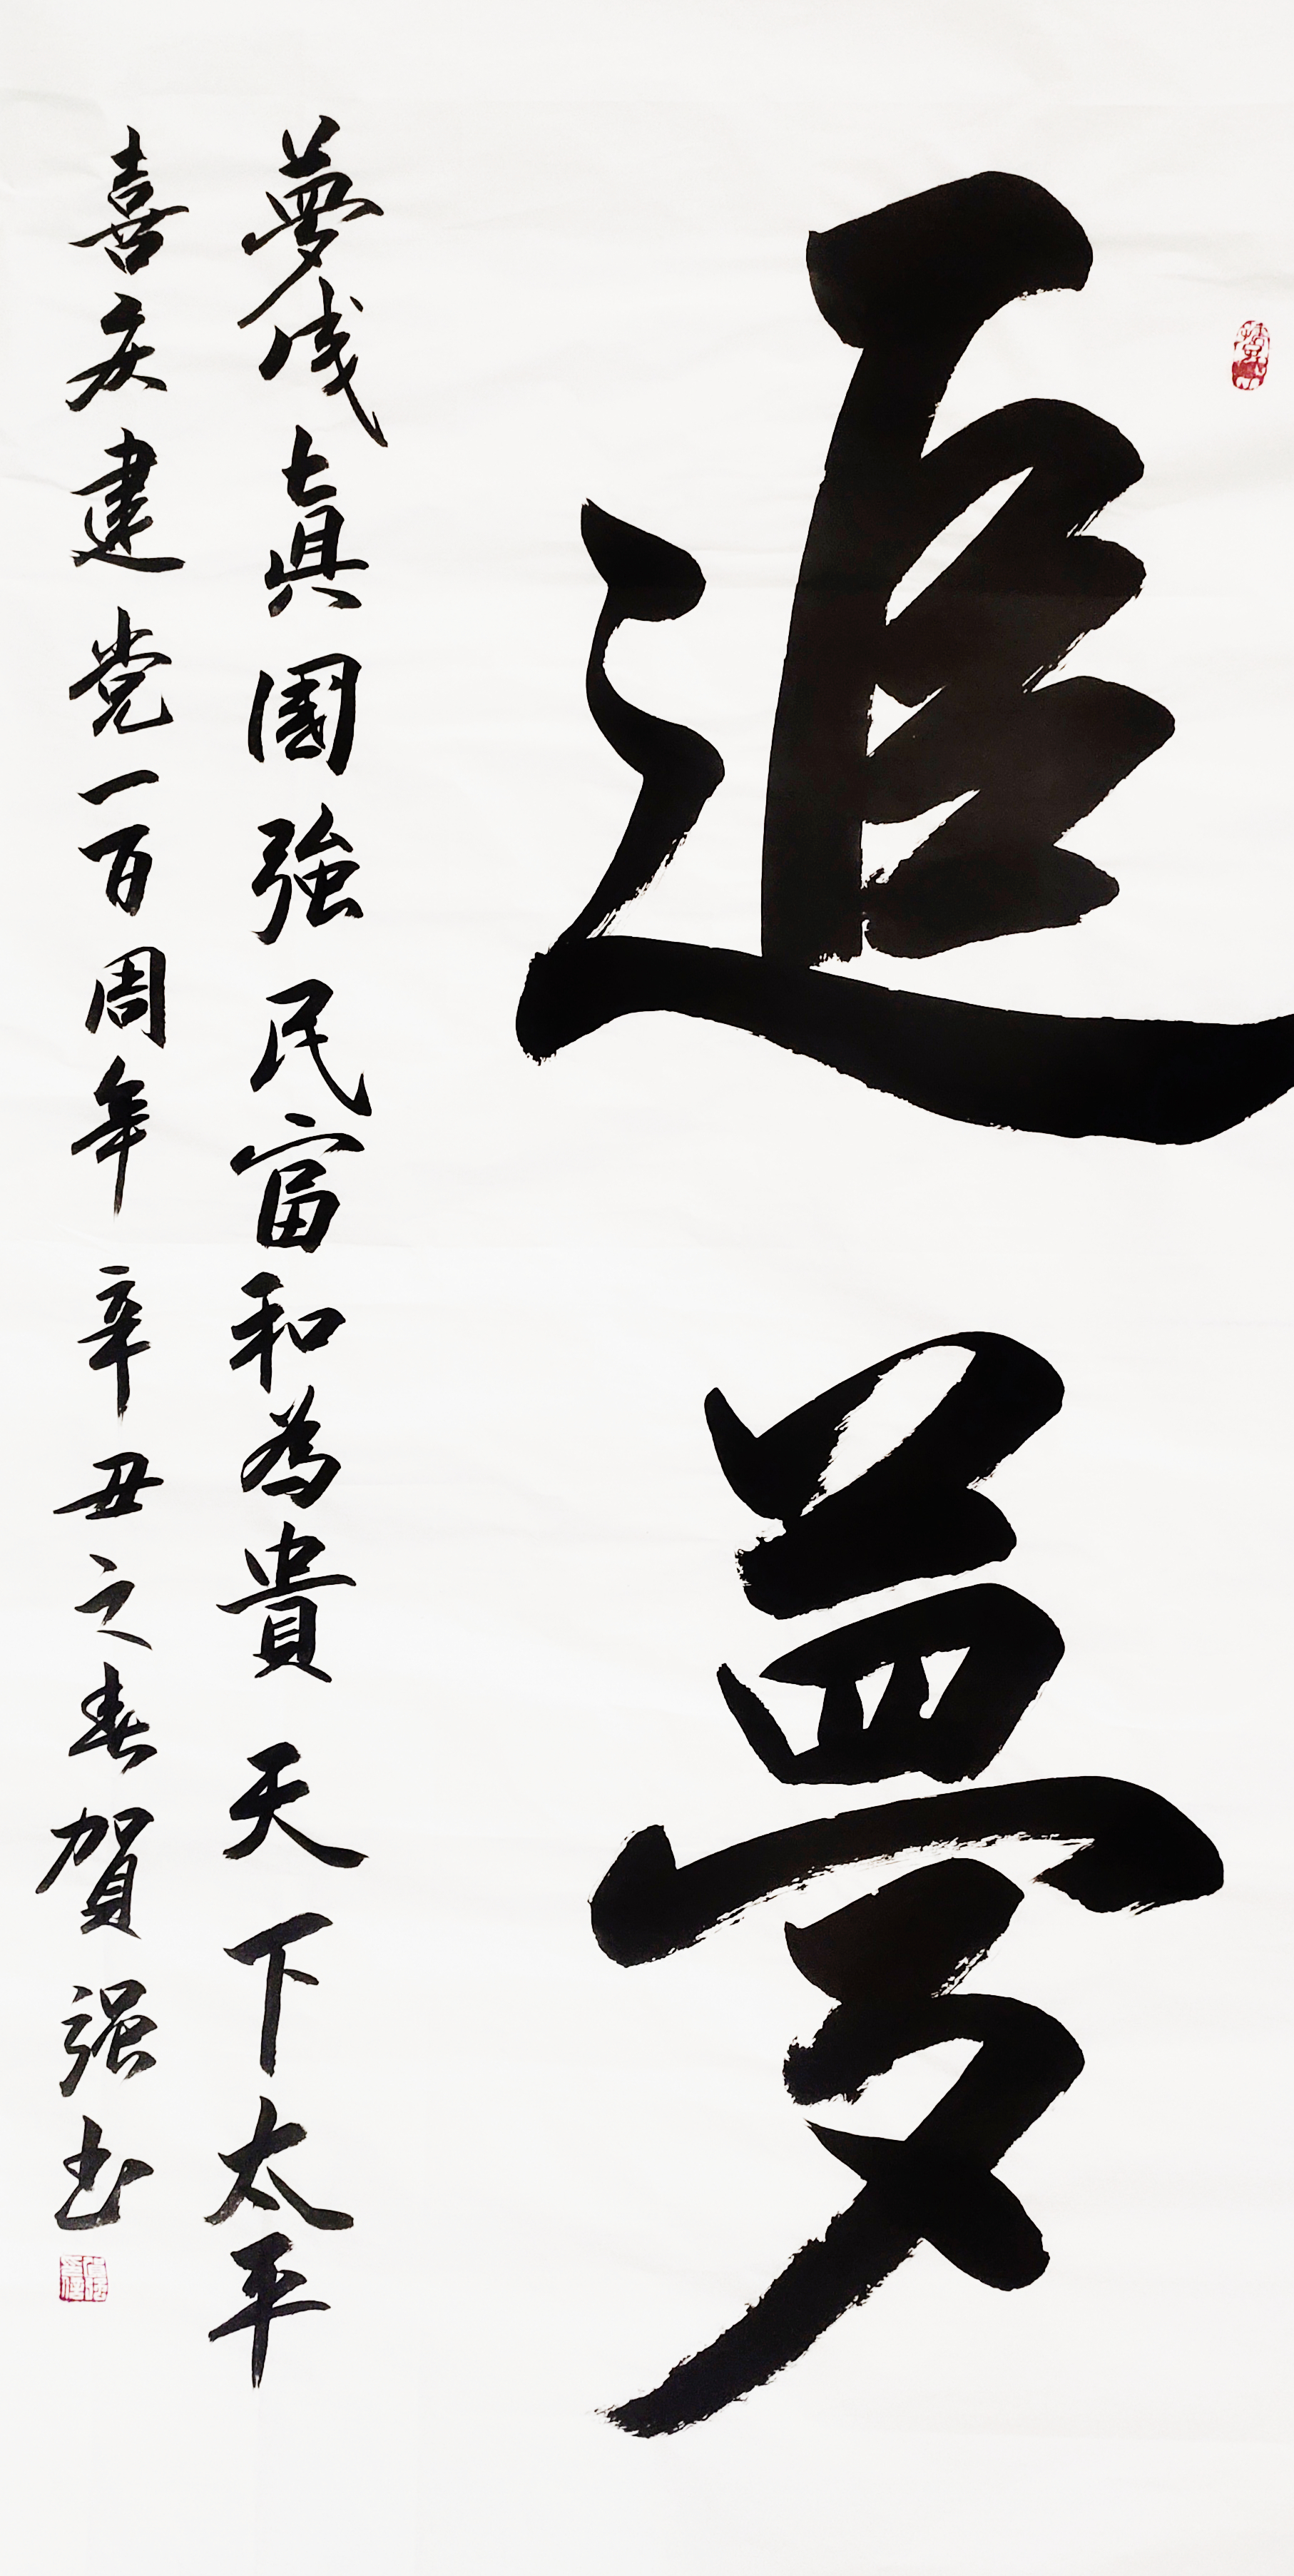 追夢
夢成真國強民富和為貴天下太平
喜庆建党一百周年辛丑之春賀强书